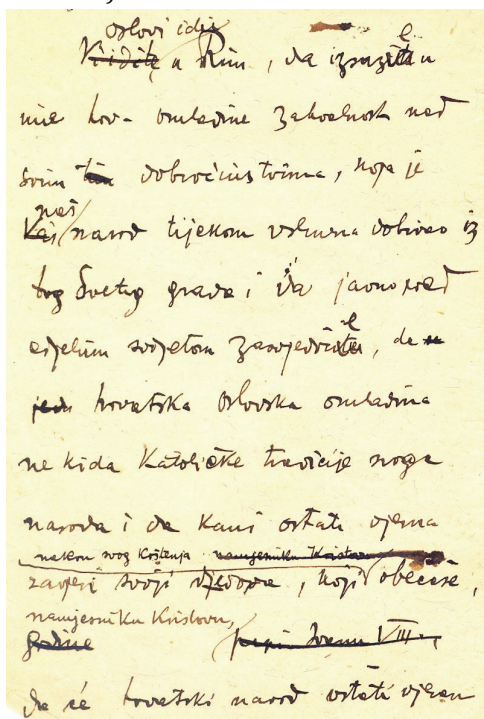 orlovi idu
Vi idite u Rim, da izraze u
ime hrv. omladine zahvalnost nad
svim tim dobročinstvima, koja je
naš
Vaš narod tijekom vremena dobivao iz
tog Svetog grada i da javno pred
cijelim svijetom zasvjedoče, da
hrvatska Orlovska omladina
ne kida Katoličke tradicije svoga
naroda i da kani ostati vjerna
nakon svog krštenja namjesniku Kristovu
zavjeri svoji djedova, koji obećaše,
namjesniku Kristovu,
godine papi Ivanu VIII.,
da će hrvatski narod ostati vjeran